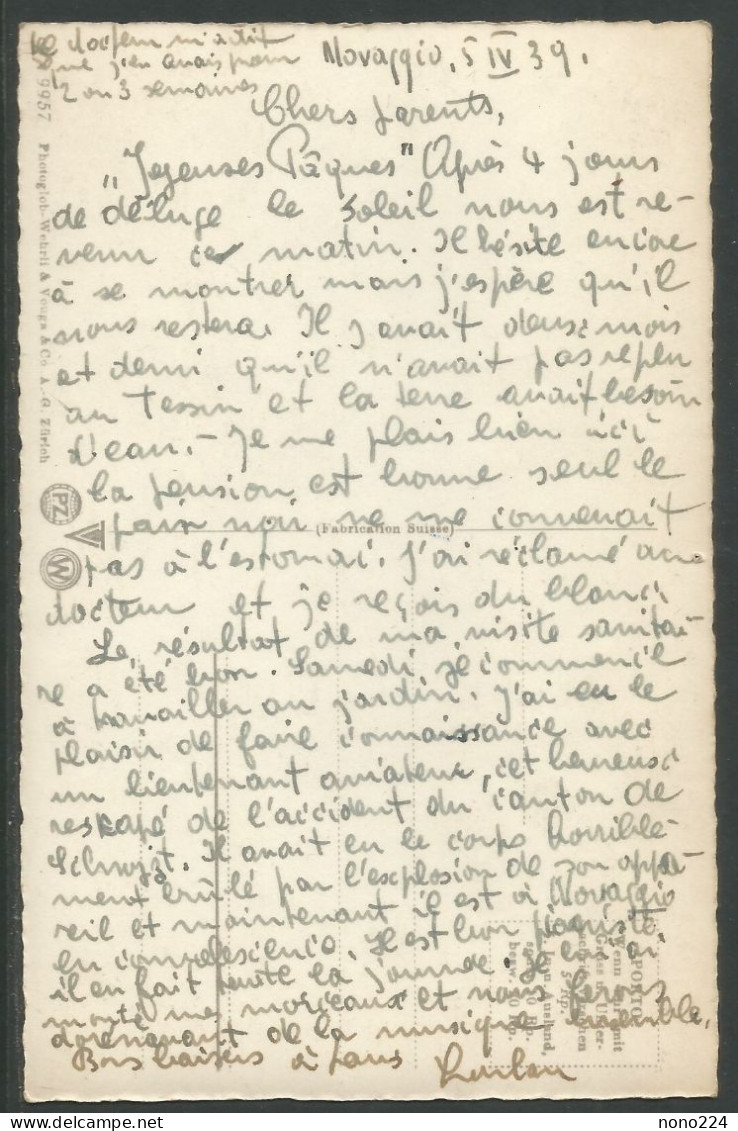 Le docteur m'a dit
que j'en avais pour
2 ou 3 semaines
Novaggio, 5 IV 39.
Chers parents,
„Joyeuses Pâques" Après 4 jours
de déluge le soleil nous est re-
venu ce matin. Il hésite encore
à se montrer mais j'espère qu'il
nous restera. Il y avait deux mois
et demi qu'il n'avait pas replu
au Tessin et la terre avait besoin
d'eau. - Je me plais bien ici
la pension est bonne seul le
pain noir ne me convenait
pas à l'estomac. J'ai réclamé au
docteur et je reçois du blanc.
Le résultat de ma visite sanitai-
re a été bon. Samedi je commence
à travailler au jardin. J'ai eu le
plaisir de faire connaissance avec
un lieutenant aviateur, cet heureux
rescapé de l'accident du canton de
Schwyz. Il avait eu le corps horrible-
ment brûlé par l'explosion de son appa-
reil et maintenant il est à Novaggio
en convalescence. Il est bon pianiste
il en fait toute la journée. Je lui ai
montré mes morceaux et nous ferons
dorénavant de la musique ensemble.
Bons baisers à tous
9957 Photoglob-Wehrli & Vouga & Co. A.-G. Zürich
PZ
W
(Fabrication Suisse)
PORTO
nono224